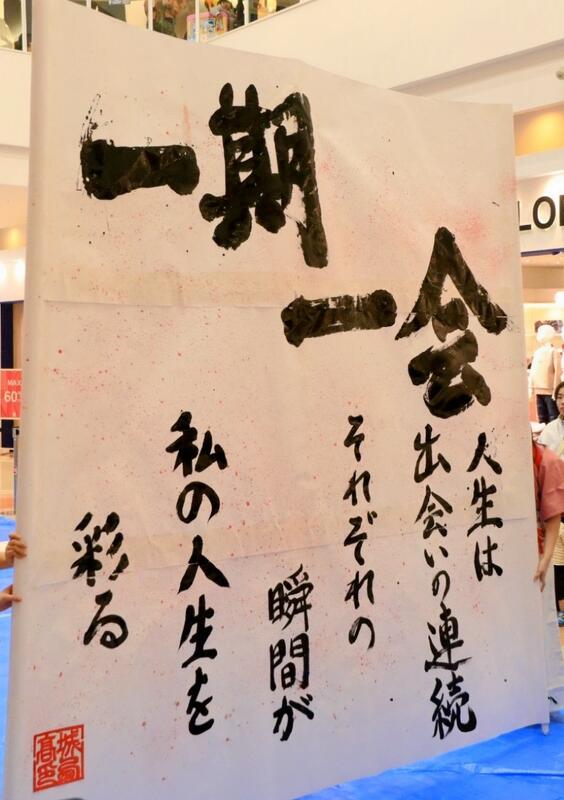 一期
一会
人生は
出会いの連続
それぞれの
瞬間が
私の人生を
彩る
MAX